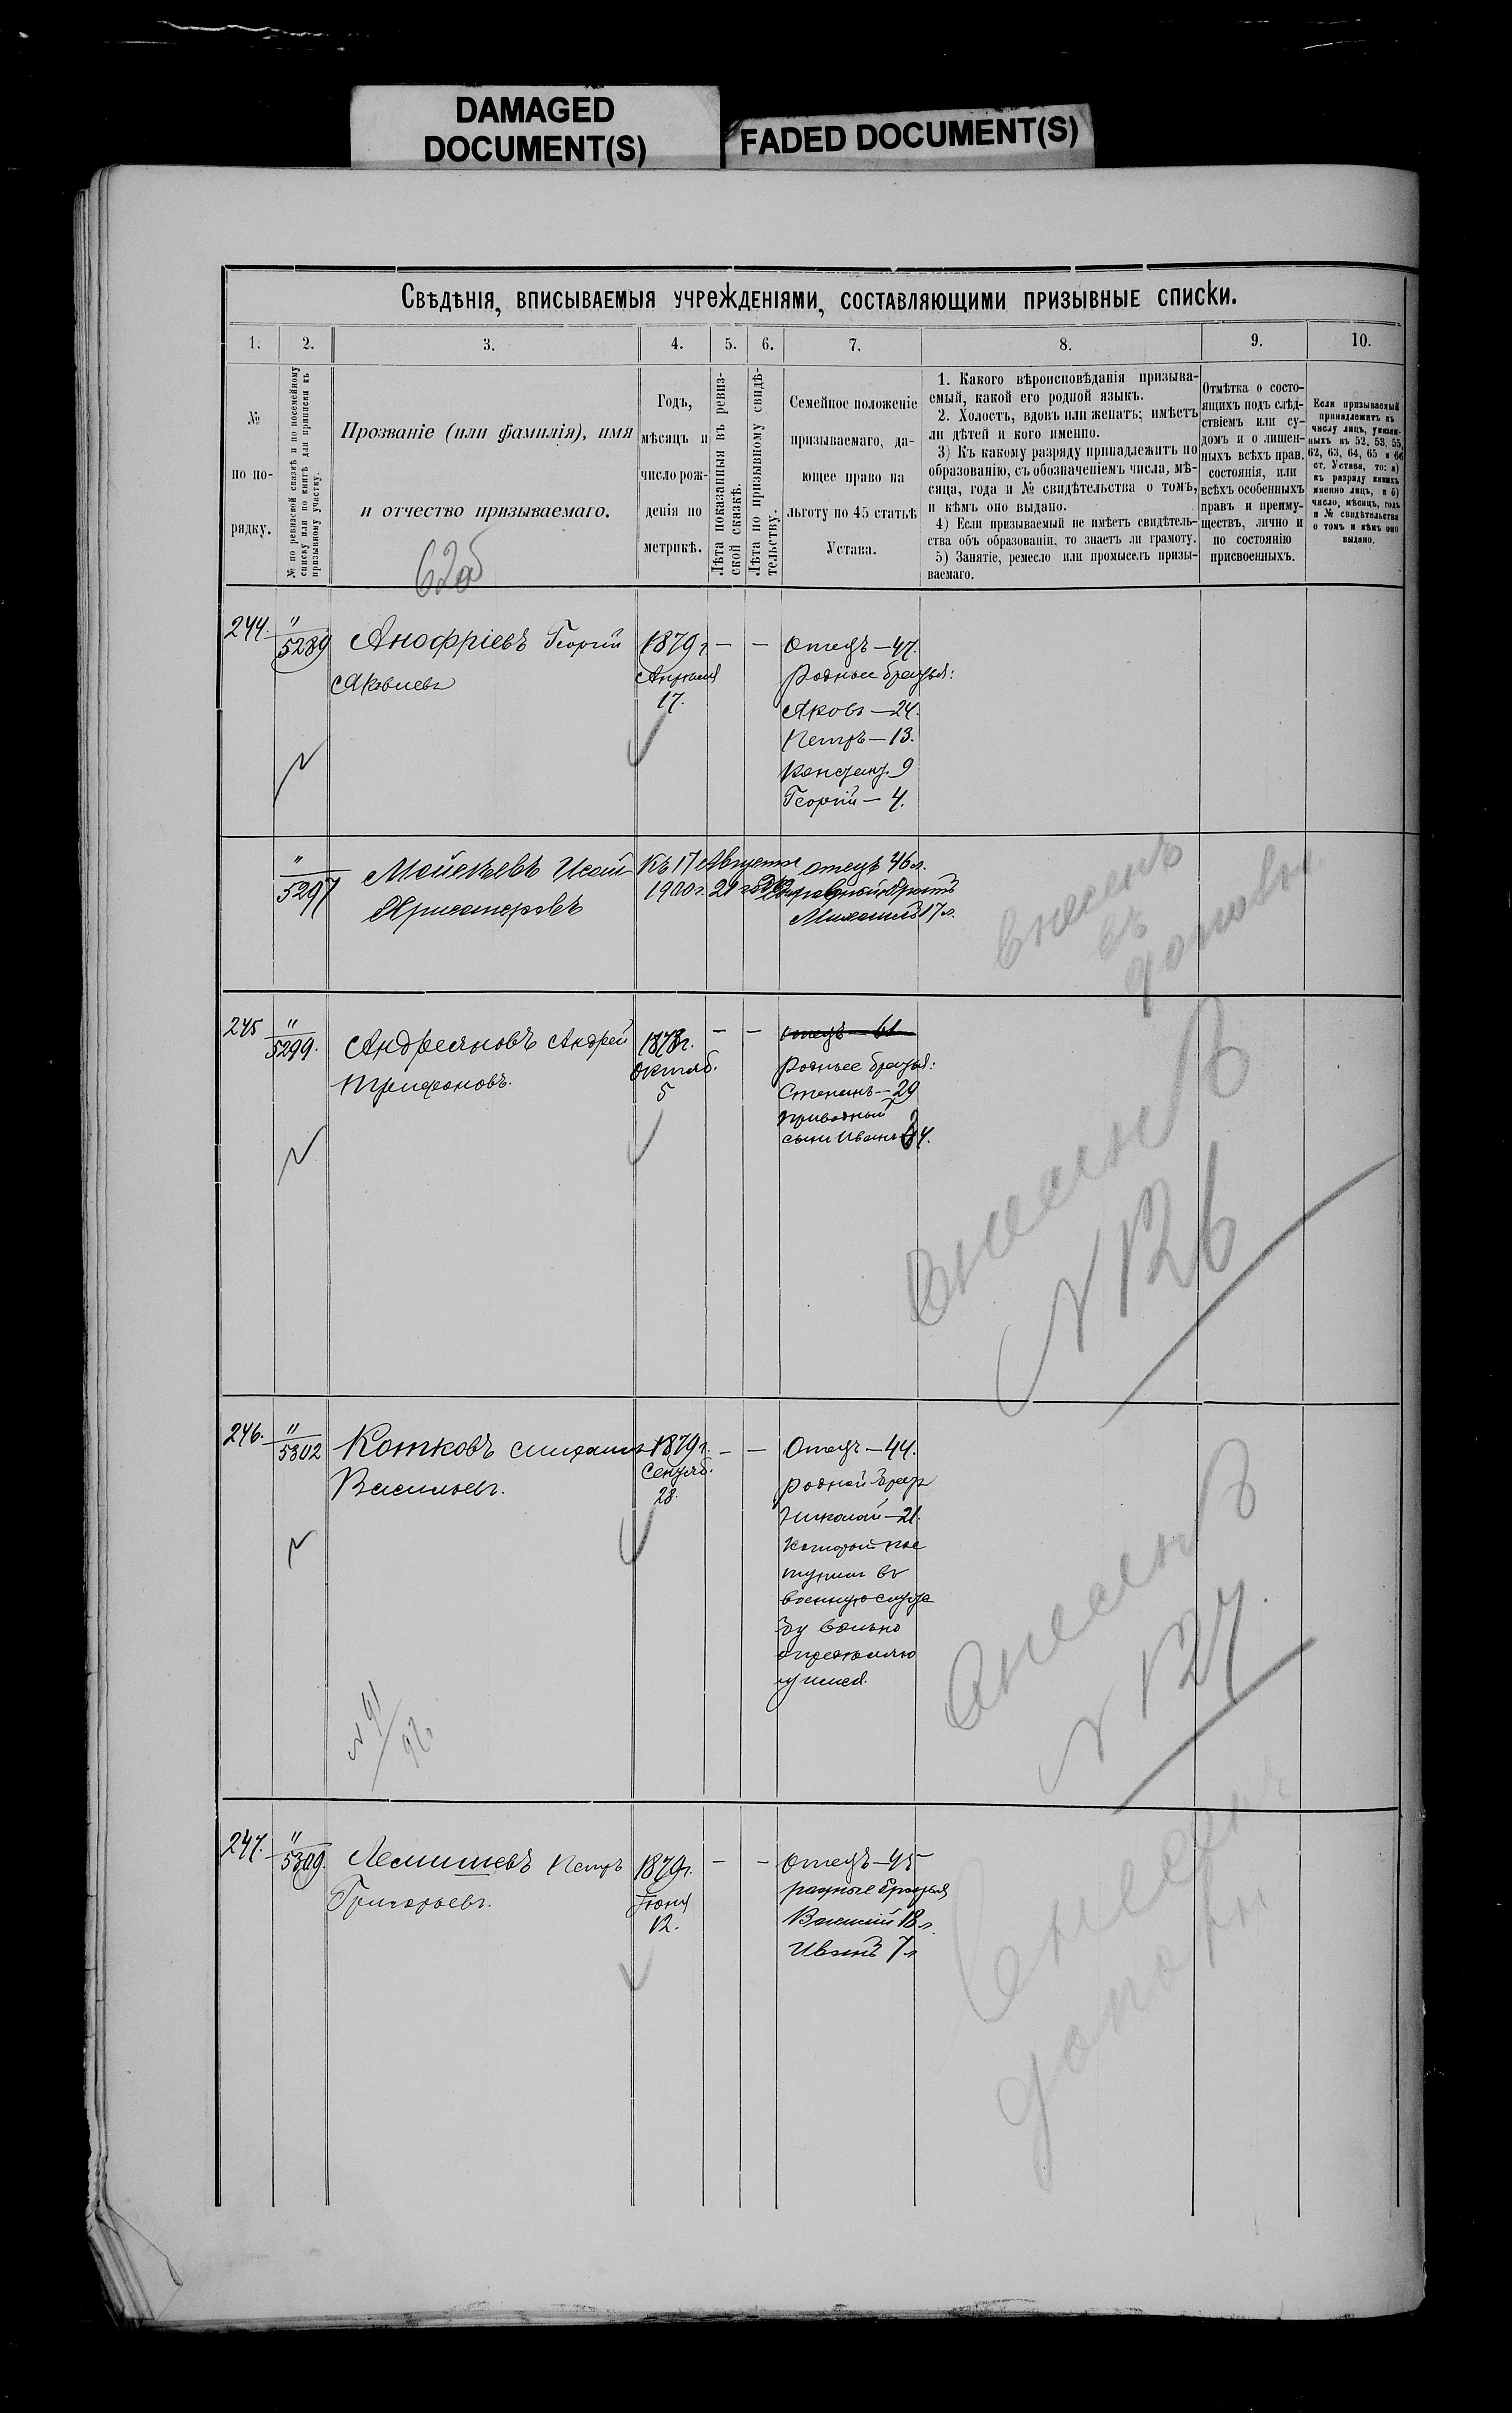 DAMAGED
DOCUMENT(S)
FADED DOCUMENT(S)
Свѣдѣнія, вписываемыя учрежденіями, составляющими призывные списки.
1.
2.
3.
4.
5.
6.
7.
8.
9.
10.
№
по по-
рядку.
№ по ревизской сказкѣ и по посемейному
списку или по книгѣ для приписки къ
призывному участку.
Прозваніе (или фамилія), имя
и отчество призываемаго.
Годъ,
мѣсяцъ и
число рож-
денія по
метрикѣ.
Лѣта показанныя въ ревиз-
ской сказкѣ.
Лѣта по призывному свидѣ-
тельству.
Семейное положеніе
призываемаго, да-
ющее право на
льготу по 45 статьѣ
Устава.
1. Какого вѣроисповѣданія призыва-
емый, какой его родной языкъ.
2. Холостъ, вдовъ или женатъ; имѣетъ
ли дѣтей и кого именно.
3) Къ какому разряду принадлежитъ по
образованію, съ обозначеніемъ числа, мѣ-
сяца, года и № свидѣтельства о томъ,
и кѣмъ оно выдано.
4) Если призываемый не имѣетъ свидѣтель-
ства объ образованіи, то знаетъ ли грамоту.
5) Занятіе, ремесло или промыселъ призы-
ваемаго.
Отмѣтка о состо-
ящихъ подъ слѣд-
ствіемъ или су-
домъ и о лишен-
ныхъ всѣхъ прав.
состоянія, или
всѣхъ особенныхъ
правъ и преиму-
ществъ, лично и
по состоянію
присвоенныхъ.
Если призываемый
принадлежитъ къ
числу лицъ, указан-
ныхъ въ 52, 53, 55,
62, 63, 64, 65 и 66
ст. Устава, то: а)
къ разряду какихъ
именно лицъ, и б)
число, мѣсяцъ, годъ
и № свидѣтельства
о томъ и кѣмъ оно
выдано.
62об
244.
"
5289
Анофріевъ Георгій
Яковлевъ
1879 г.
Апрѣля
17.
— —
Отецъ — 47.
родные братья:
Яковъ — 24.
Петръ — 13.
Констант. 9
Георгій — 4.
"
5297
Мойсеевъ Исай
Къ 17 Августа
1900 г. 21 годъ
отецъ 46 л.
братъ
Михаилъ 17 л.
внесенъ
въ
245
"
5299.
Андреяновъ Андрей
Трифоновъ.
1878 г.
Октяб.
5
— —
отецъ — 61
родные братья:
Степанъ — 29
приводный
сынъ Иванъ 4.
Внесенъ
№ 126
246.
"
5302
Котковъ
Васильевъ.
1879 г.
Сентяб.
28.
— —
Отецъ — 44.
родной брат
Николай — 21.
который пос
тупилъ въ
военную служ
бу вольно
опредѣляю
щимся.
№ 91
92
Внесенъ
№ 127.
247.
"
5309.
Лемишевъ Петръ
Григорьевъ.
1879 г.
Іюня
12.
— —
Отецъ — 45
родные братья
Василій 18 л.
Иванъ 7 л
Внесенъ